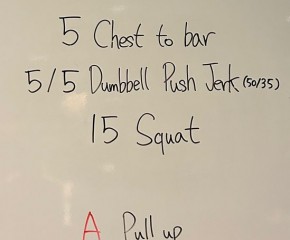 5 Chest to bar
5/5 Dumbbell Push Jerk (50/35)
15 Squat
A Pull up